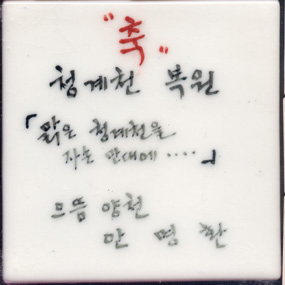 "축"
청계천 복원
「맑은 청계천을
자손 만대에 ····」
으뜸 양천
안 명 환